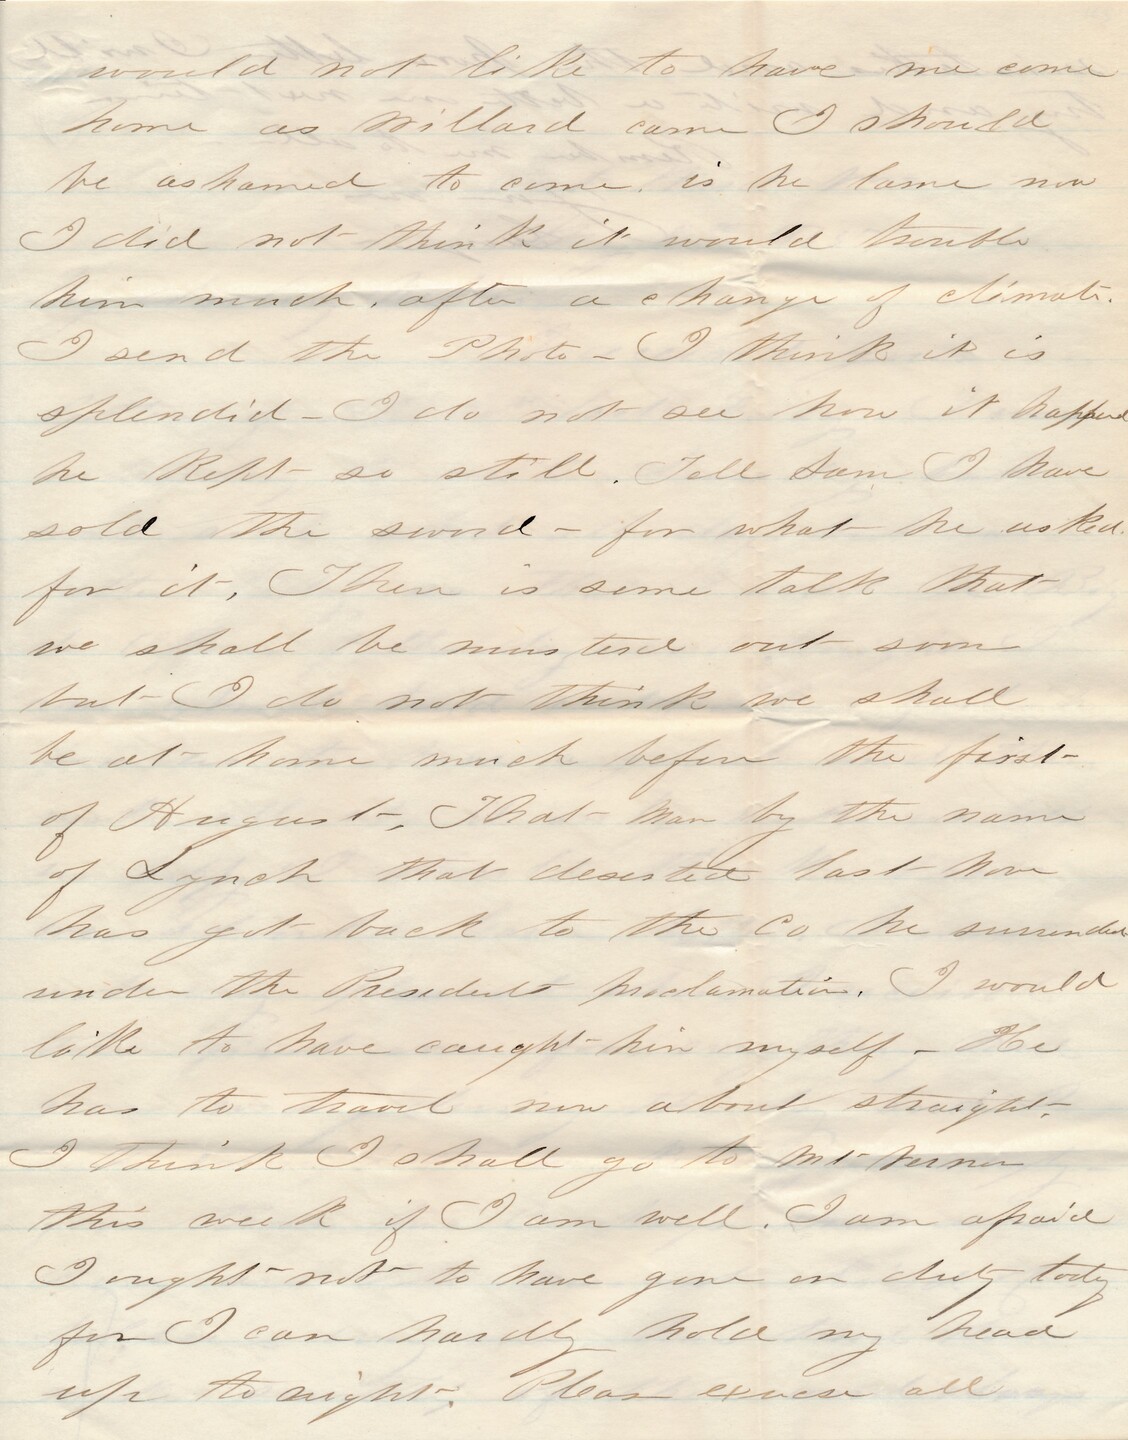 would not like to have me come
home as Willard came I should
be ashamed to come. is he lame now
I did not think it would trouble
him much, after a change of climate.
I send the Photo - I think it is
splendid - I do not see how it happend
he kept so still. Tell Sam I have
sold the sword - for what he asked.
for it, There is some talk that
we shall be musterd out soon
but I do not think we shall
be at home much before the first
of August, That man by the name
of Lynch that deserted last Nov
has got back to the Co he surrended
under the Presidents proclamation. I would
like to have caught him myself - He
has to travel now about straight,
I think I shall go to Mt Vernon
this week if I am well. I am afraid
I ought not to have gone on duty today
for I can hardly hold my head
up to night. Please excuse all